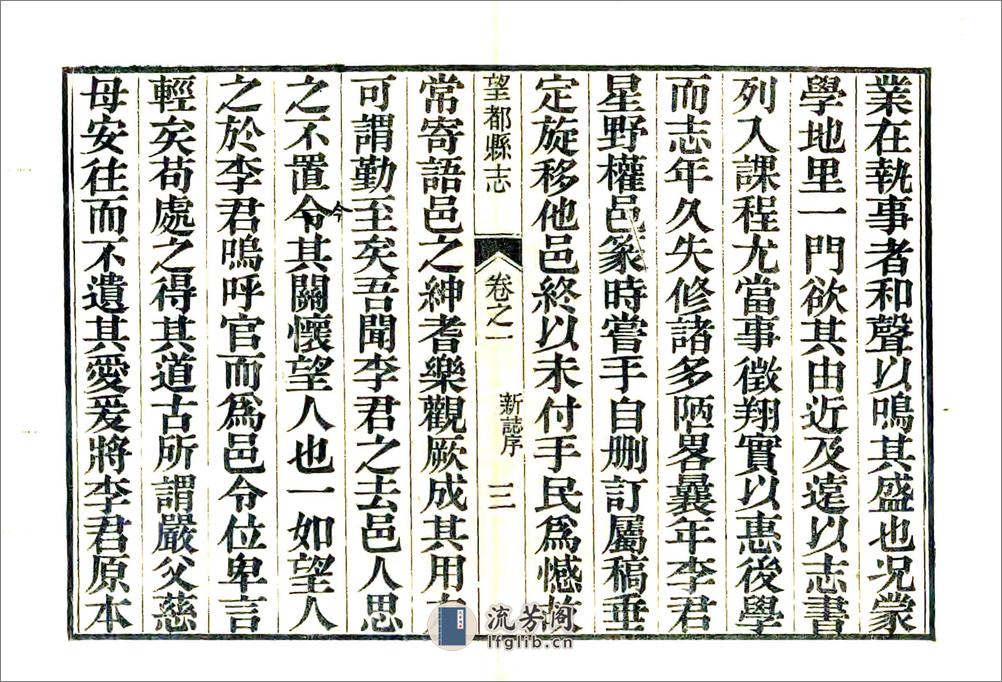 業在執事者和聲以鳴其盛也况蒙
學地里一門欲其由近及遠以志書
列入課程尤當事徵翔實以惠後學
而志年久失修諸多陋畧曩年李君
星野權邑篆時嘗手自删訂屬稿垂
定旋移他邑終以未付手民爲憾
望都縣志 卷之一 新誌序 三
常寄語邑之紳耆樂觀厥成其用
可謂勤至矣吾聞李君之去邑人思
之不置令今其關懷望人也一如望人
之於李君嗚呼官而爲邑令位卑言
輕矣苟處之得其道古所謂嚴父慈
母安往而不遺其愛爰將李君原本
流芳阁
lfglib.cn